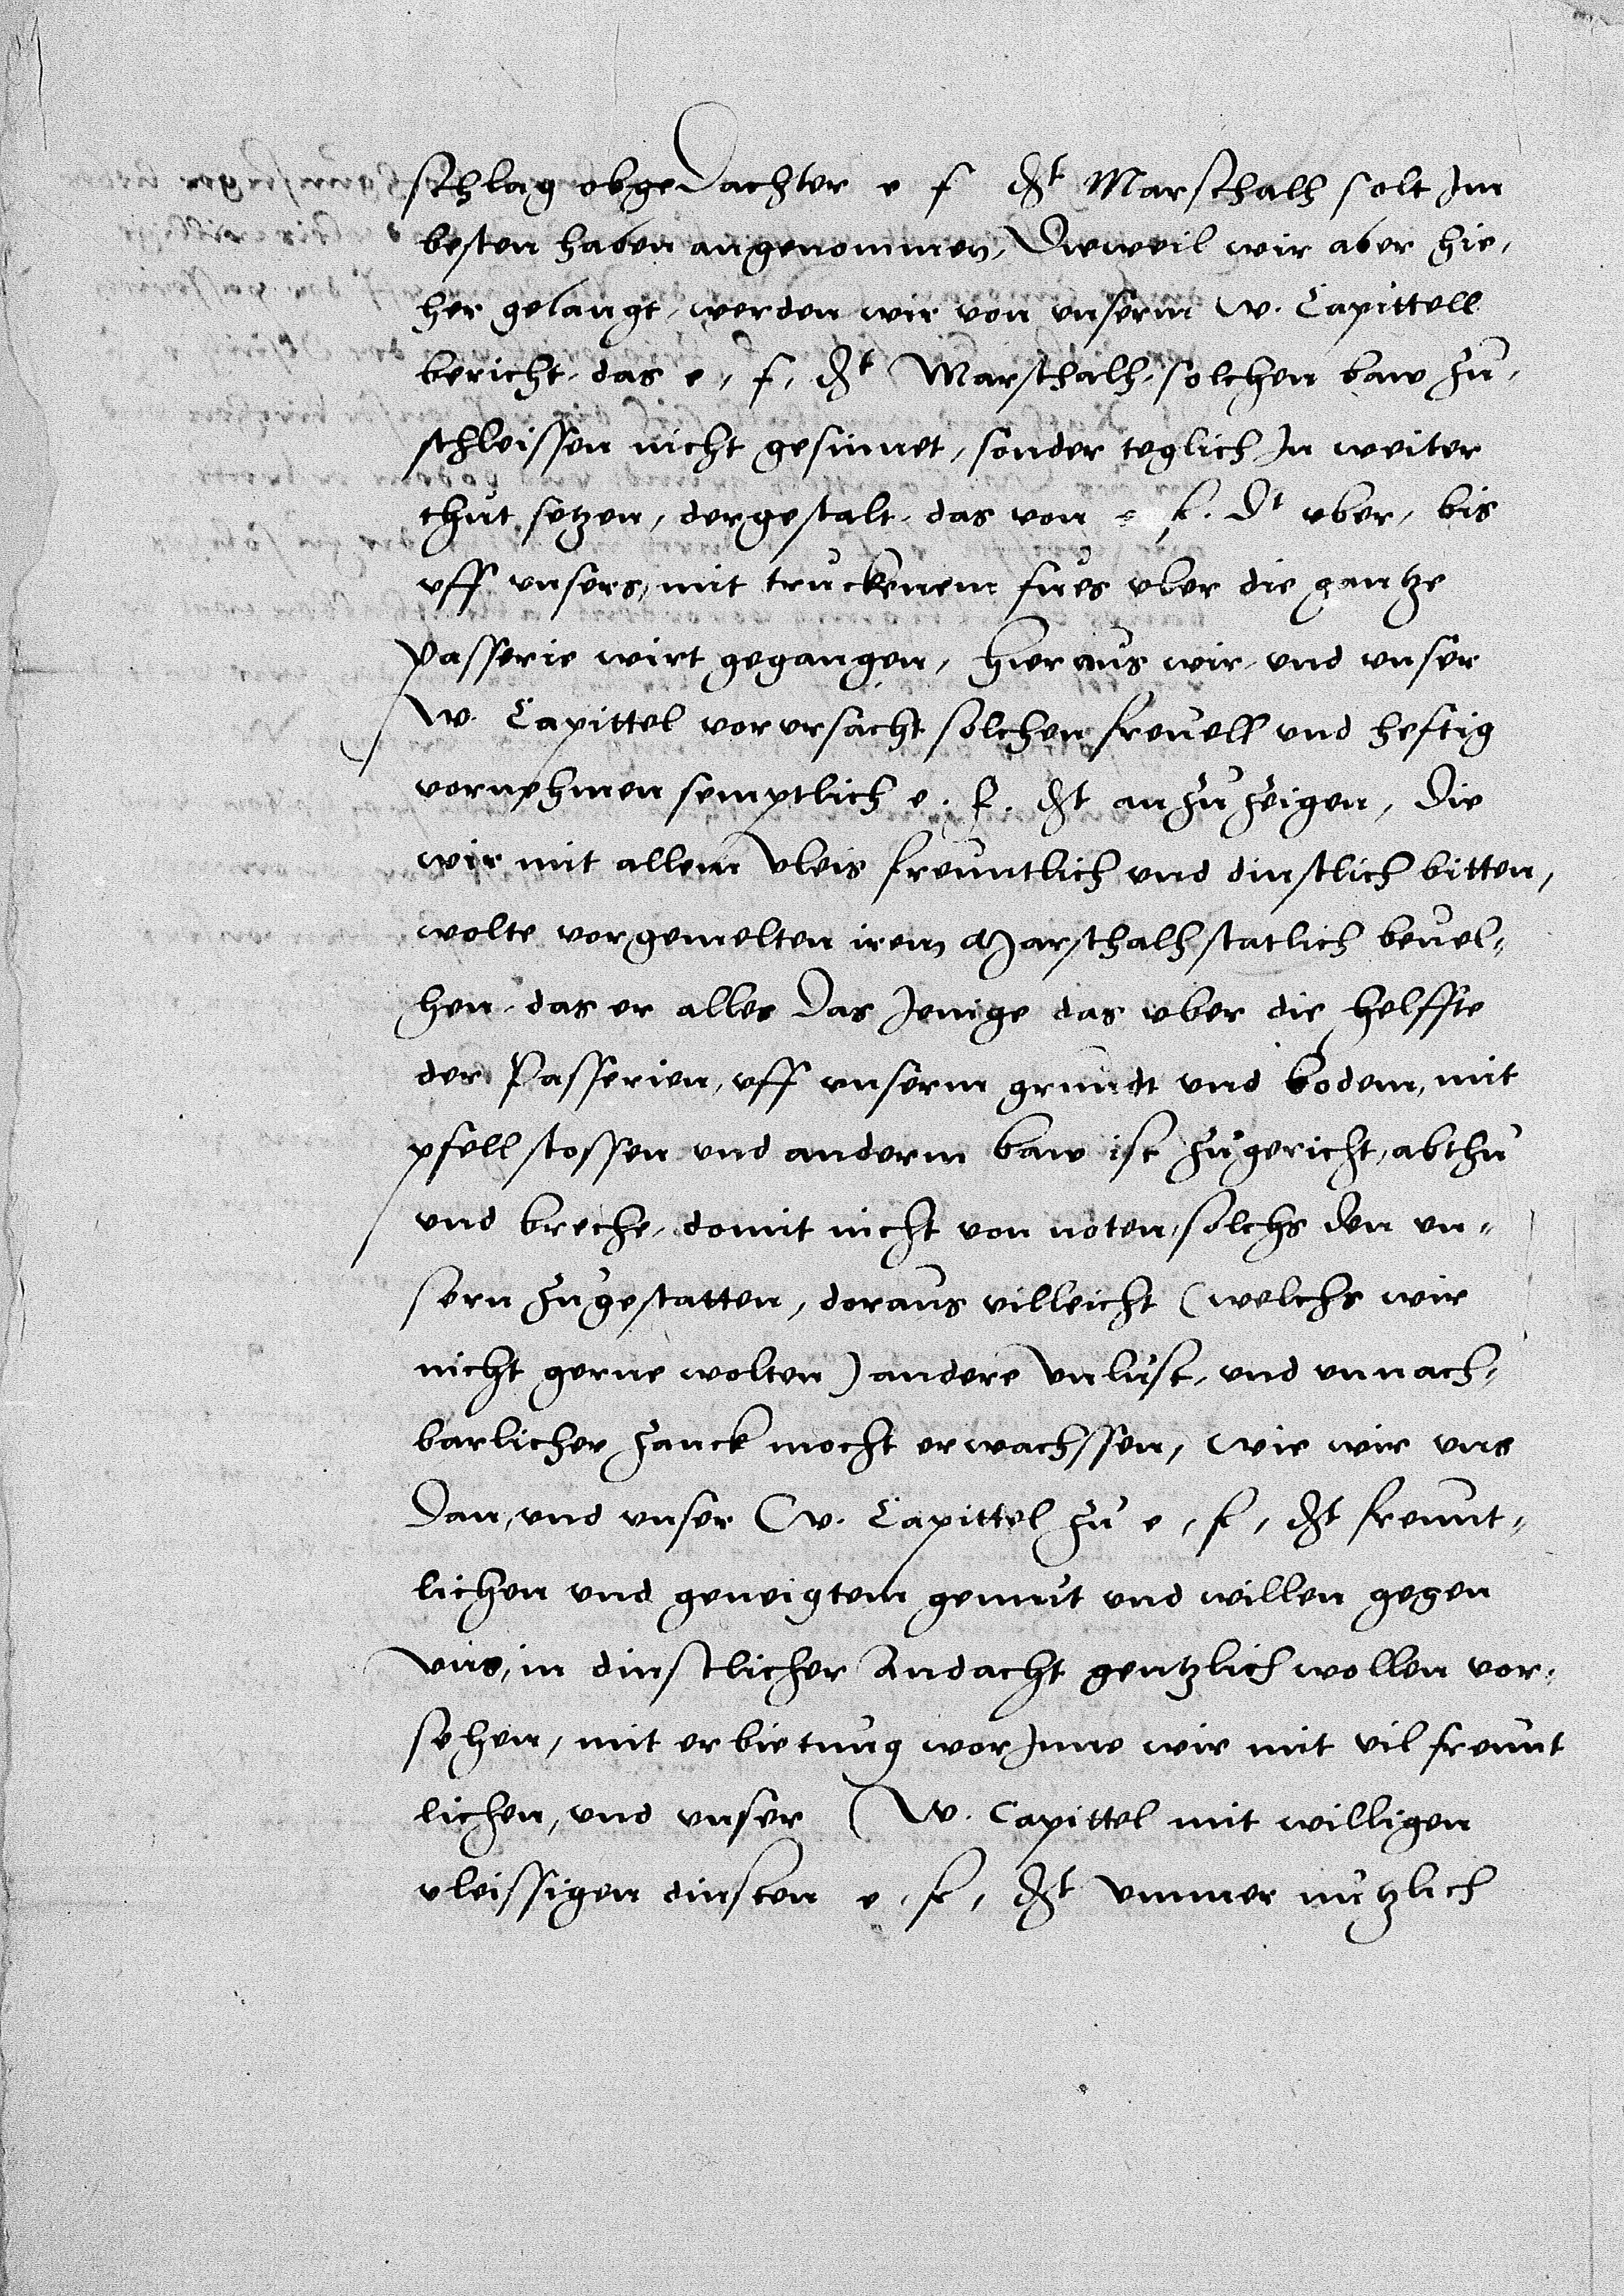 schlag obgedachter e f dt Marschalh solt Im
besten haben angenommen, Dieweil wir aber hie,
her gelangt, werden wir von vnserm w. Capittell
bericht, das e, f, dt Marschalh, solchen baw zu,
schleissen nicht gesinnet, sonder teglich In weiter
thut setzen, dergestalt, das von e f. Dt vber, bis
vff vnsers, mit truckenem fues vber die gantze
Passerie wirt gegangen, hieraus wir, vnd vnser
W. Capittel vorursacht solchen freuell vnd heftig
vornehmen semptlich e. f. dt anzuzeigen, Die
wir mit allem vleis freuntlich vnd dinstlich bitten,
wolte vorgemelten iren Marschalh statlich beuel,,
hen, das er alles Das Jenige das vber die helffte
der Passerien, vff vnserm grundt vnd bodem, mit
pfell stossen vnd anderm baw ist zugericht, abthu
vnd breche, domit nicht von noten, solchs den vn,,
sern zugestatten, doraus villeicht (welchs wir
nicht gerne wolten) andere vnlust, vnd vnnach,,
barlicher zanck mocht erwachssen, wie wir vns
Dan, vnd vnser W. Capittel zu e, f, dt freunt,,
lichen vnd geneigtem gemut vnd willen gegen
vns, in dinstlicher Andacht gentzlich wollen vor,,
sehen, mit erbietung worInne wir mit vil freunt
lichen, vnd vnser W. Capittel mit willigen
vleissigen dinsten e, f, dt ummer nutzlich